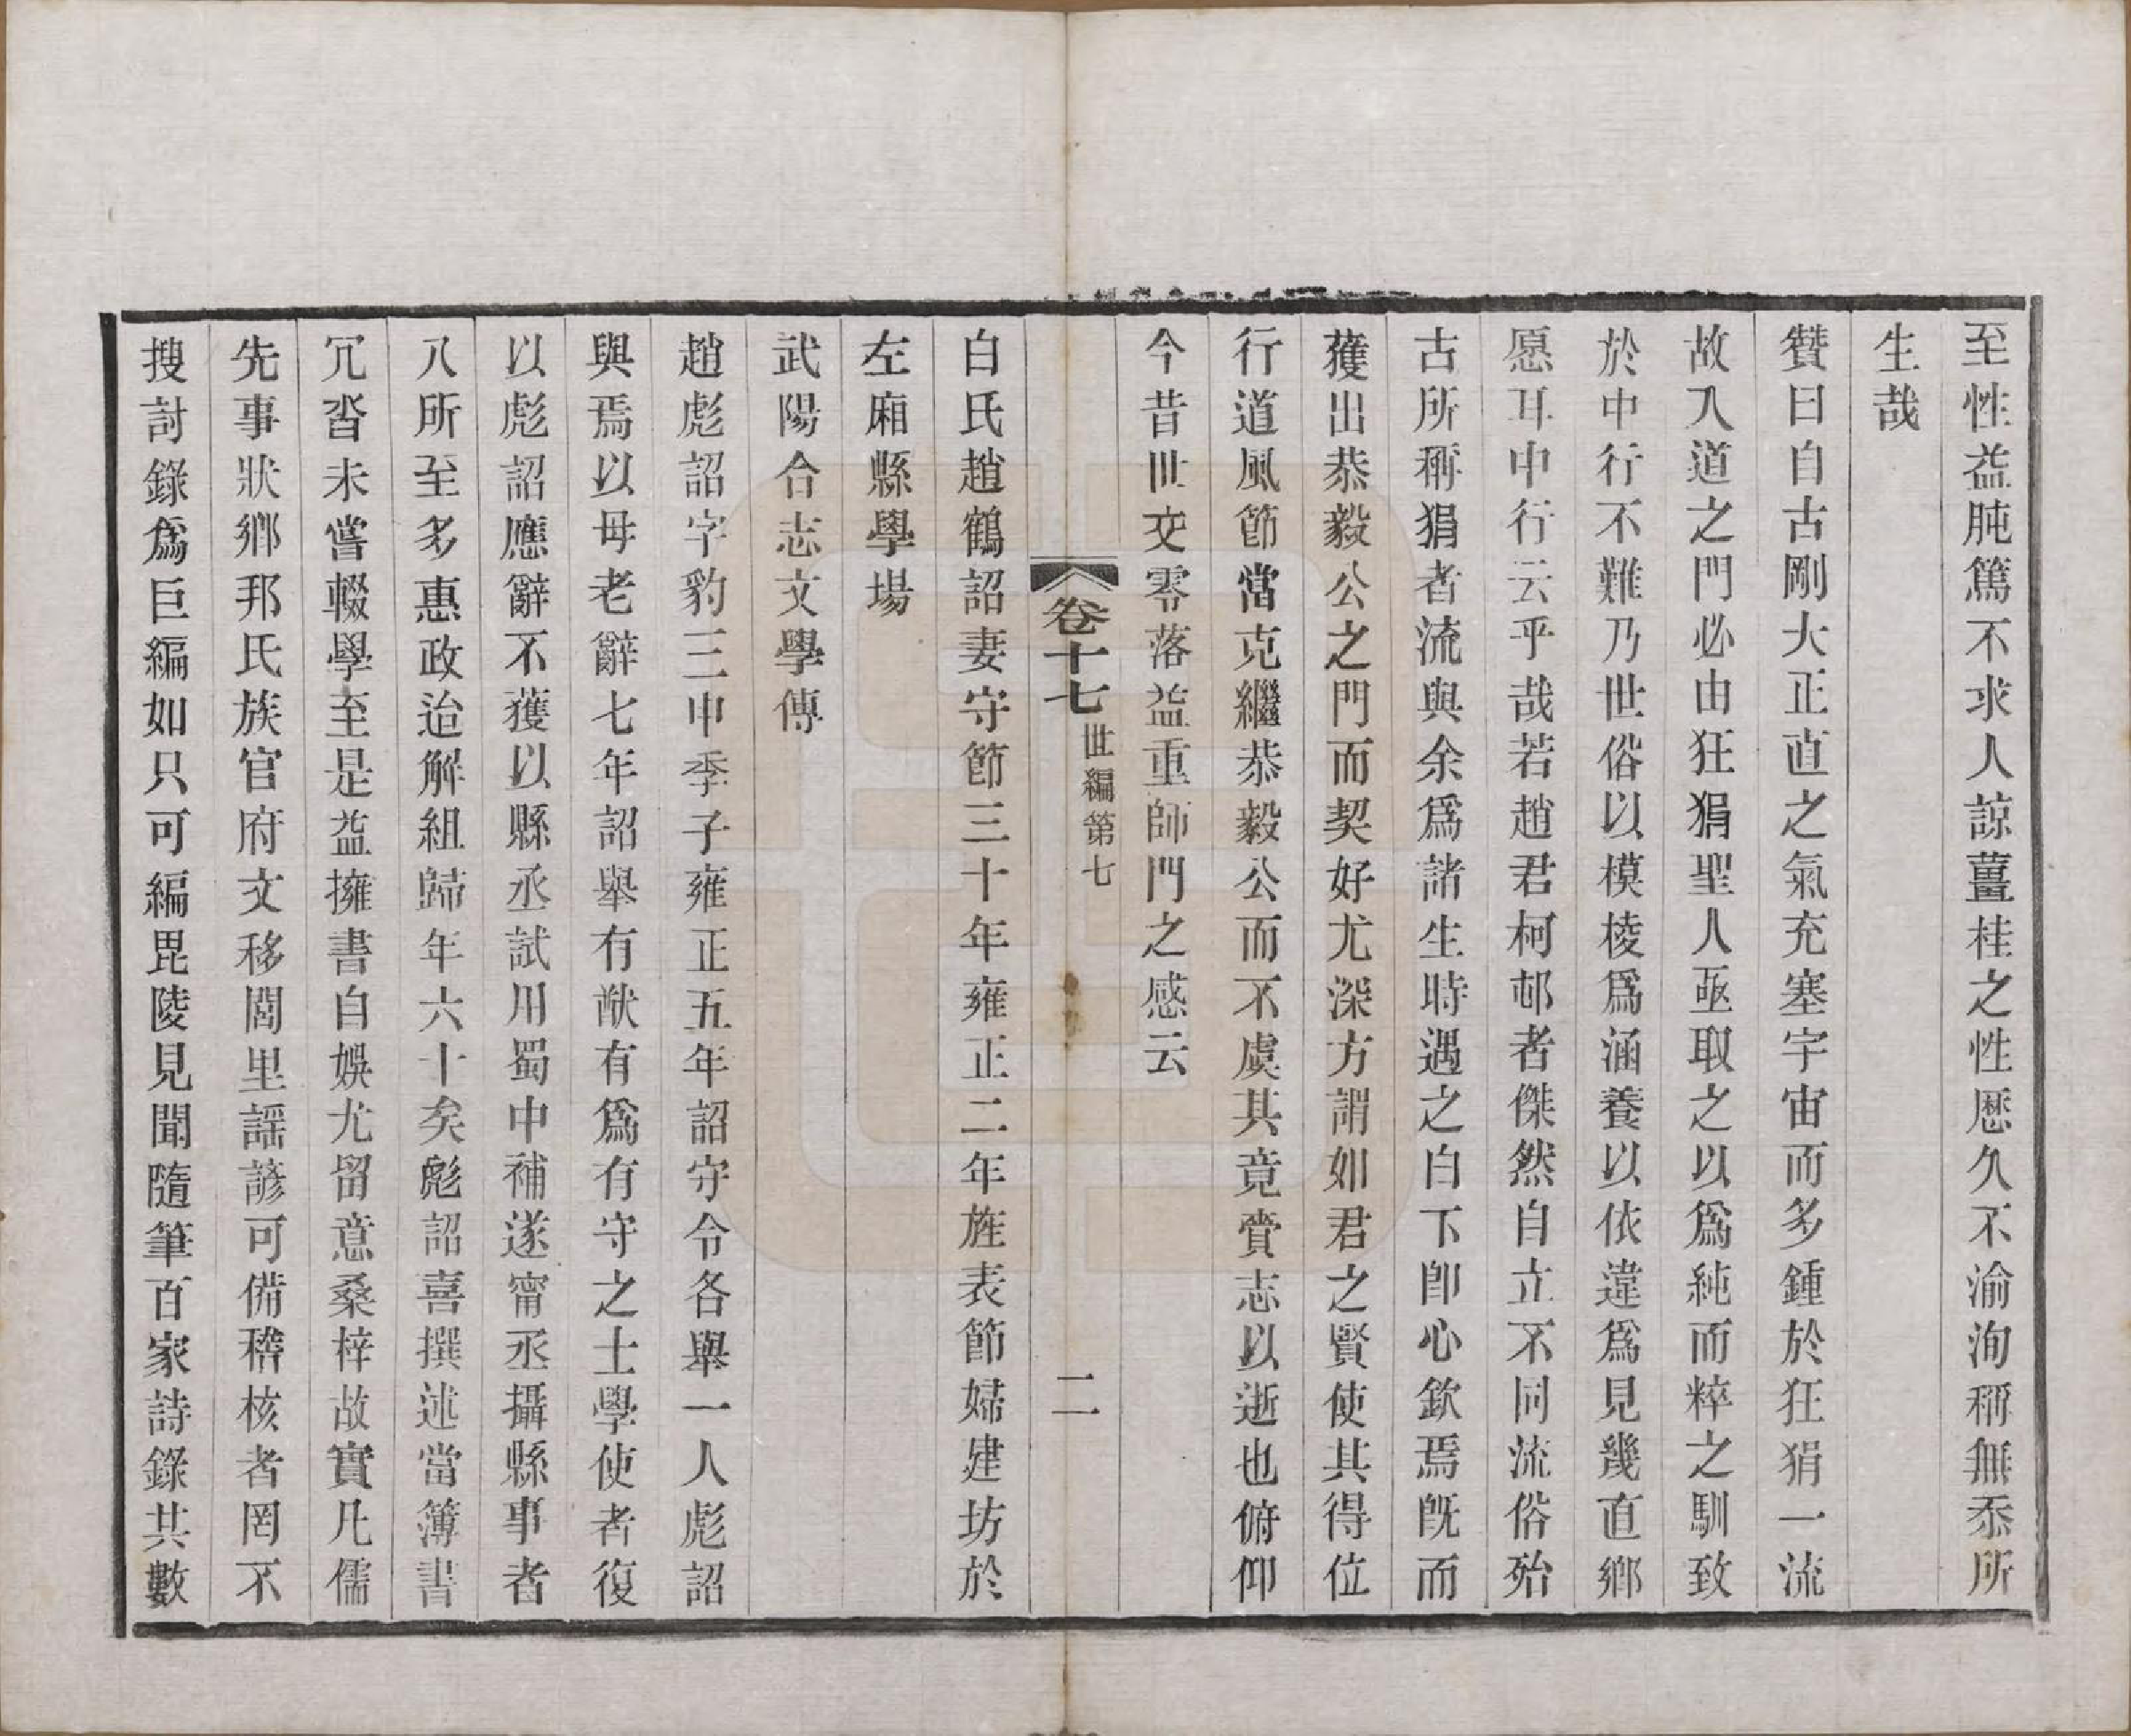 至性益肫篤不求人諒薑桂之性厯久不渝洵稱無忝所
生哉
贊曰自古剛大正直之氣充塞宇宙而多鍾於狂狷一流
故入道之門必由狂狷聖人亟取之以爲純而粹之馴致
於中行不難乃世俗以模棱爲涵養以依違爲見幾直鄉
愿耳中行云乎哉若趙君柯邨者傑然自立不同流俗殆
古所稱狷者流與余爲諸生時遇之白下卽心欽焉旣而
獲出恭毅公之門而契好尤深方謂如君之賢使其得位
行道風節當克繼恭毅公而不虞其竟賫志以逝也俯仰
今昔世交零落益重師門之感云
卷十七 世編第七 二
白氏趙鶴詔妻守節三十年雍正二年旌表節婦建坊於
左廂縣學場
武陽合志文學傳
趙彪詔字豹三申季子雍正五年詔守令各舉一人彪詔
與焉以母老辭七年詔舉有猷有爲有守之士學使者復
以彪詔應辭不獲以縣丞試用蜀中補遂甯丞攝縣事者
八所至多惠政迨解組歸年六十矣彪詔喜撰述當簿書
冗沓未嘗輟學至是益擁書自娛尤留意桑梓故實凡儒
先事狀鄉邦氏族官府文移閭里謡諺可備稽核者罔不
搜討錄爲巨編如只可編毘陵見聞隨筆百家詩錄其數